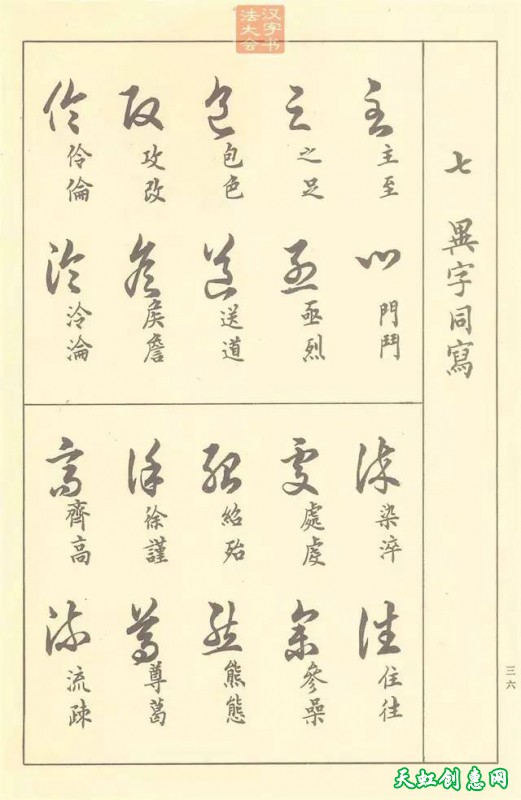 汉字书法大会
七 異字同寫
主至
門鬥
之足
亟烈
包色
送道
攻改
侯詹
伶倫
泠淪
染淬
住往
處虔
參喿
紹殆
熊態
徐謹
尊葛
齊高
流疎
三六
天虹创惠网